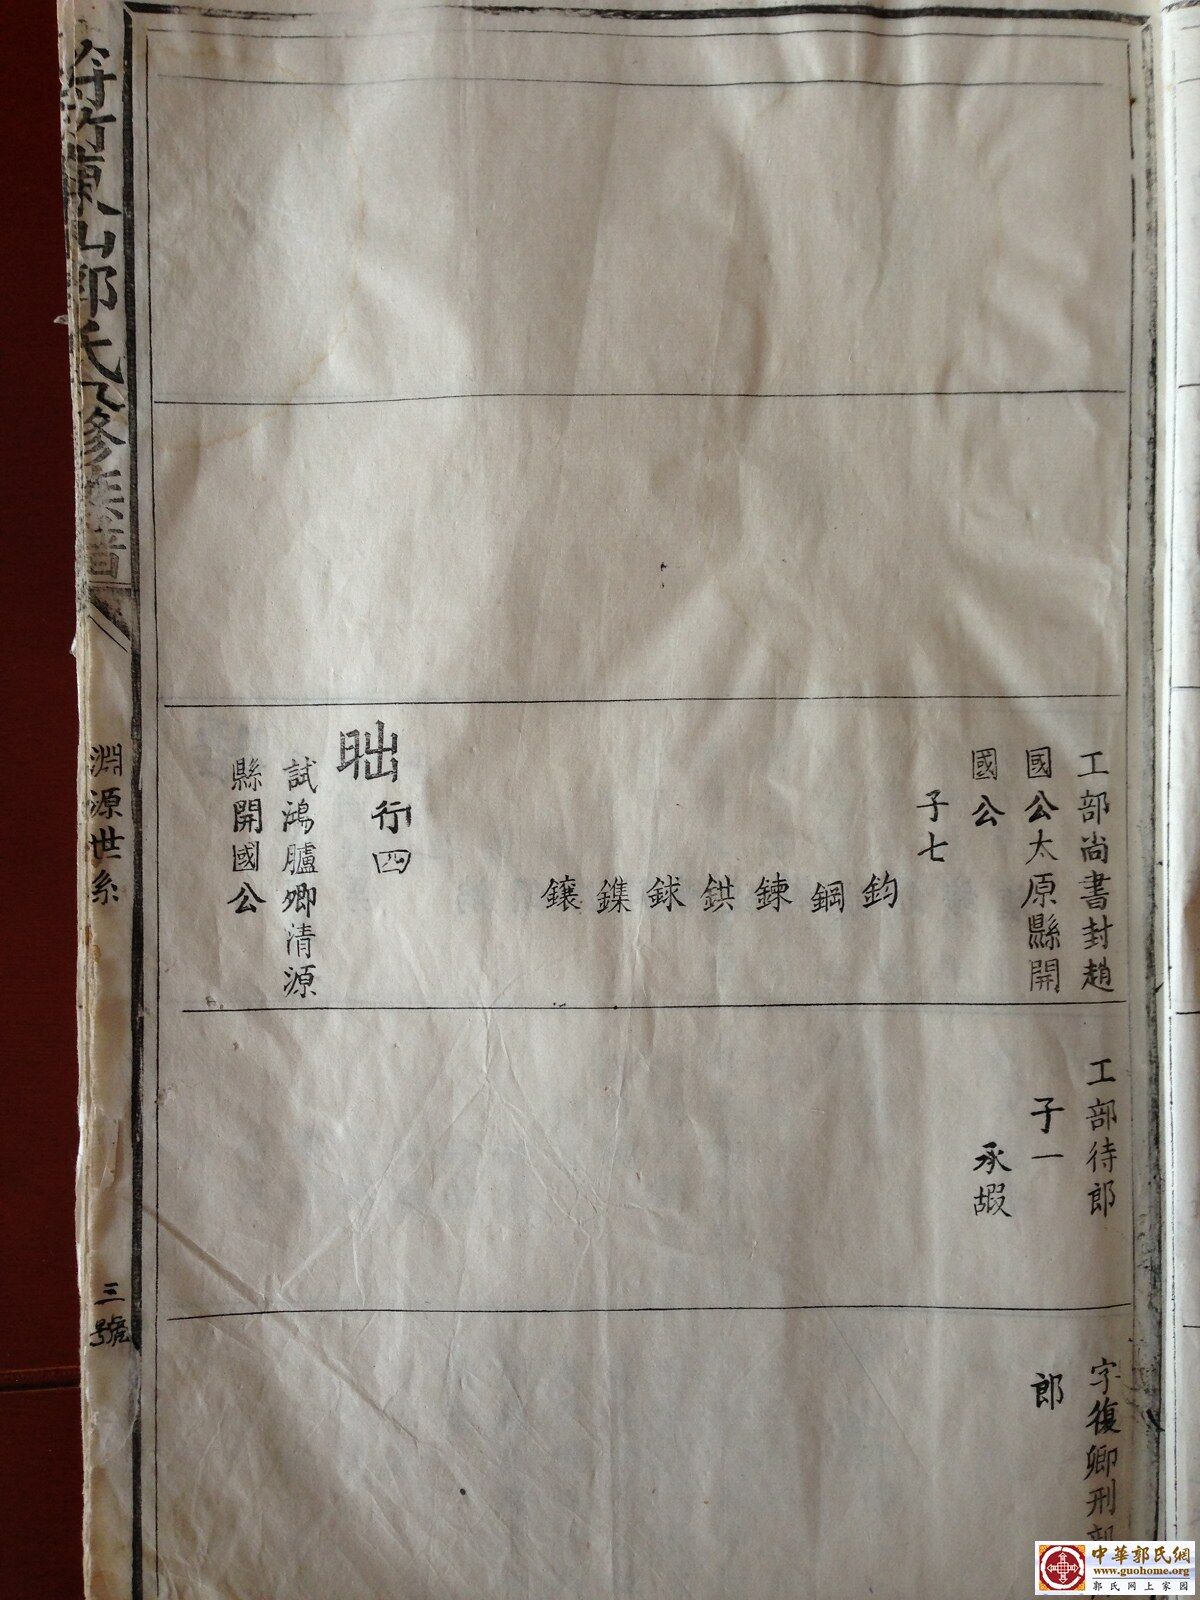 工部尚書封趙
國公太原縣開
國公
子七
鈞
鋼
鍊
鉷
銶
鏶
鑲
昢
行四
試鴻臚卿清源
縣開國公
工部待郎
子一
承嘏
字復卿刑部
郎
東山郭氏八修族譜
淵源世系
三號
中華郭氏網
www.guohome.org
郭氏网上家园